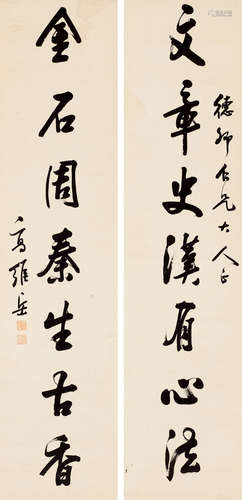 德卿仁兄大人正
文章史漢有心法
金石周秦生古香
高維岳